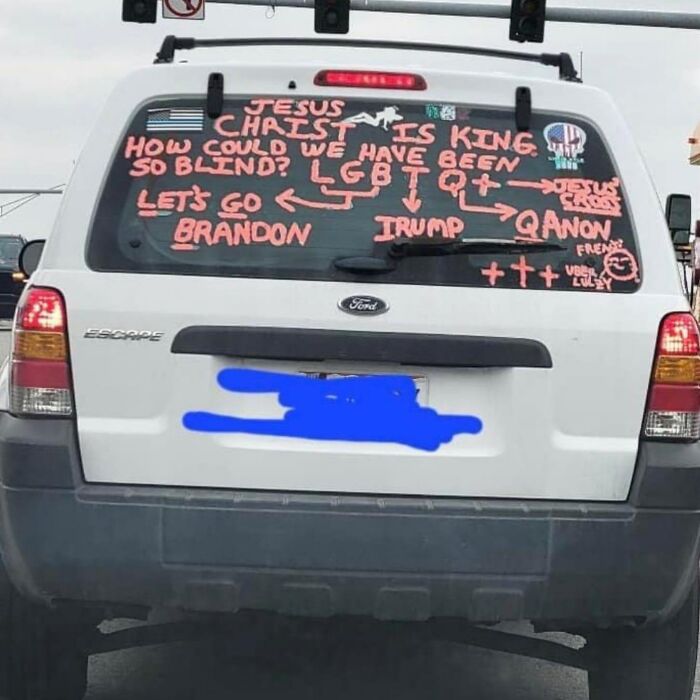 JESUS
CHRIST IS KING
HOW COULD WE HAVE BEEN
SO BLIND? LGBTQ+ → JESUS CROSS
LET'S GO
BRANDON
TRUMP
QANON
FRENZ
UBER
LULZY
Ford
ESCAPE